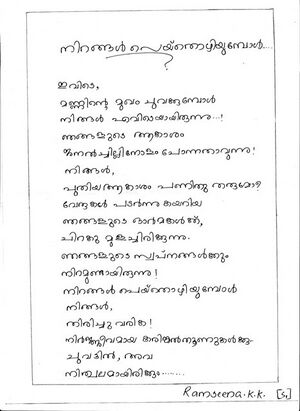 നിറങ്ങൾ പെയ്തൊഴിയുമ്പോൾ....
?
ഇവിടെ,
മണ്ണിന്റെ മുഖം ചുവക്കുമ്പോൾ
നിങ്ങൾ എവിടെയായിരുന്നു...!
ഞങ്ങളുടെ ആകാശം
ജനൽച്ചില്ലിനോളം പോന്നതാവുന്നു!
നിങ്ങൾ,
പുതിയ ആകാശം പണിതു തരുമോ?
വേരുകൾ പടർന്നു കയറിയ
ഞങ്ങളുടെ ഓർമ്മകൾക്ക്,
ചിറകു മുളച്ചിരിക്കുന്നു.
ഞങ്ങളുടെ സ്വപ്നങ്ങൾക്കും
നിറമുണ്ടായിരുന്നു!
നിറങ്ങൾ പെയ്തൊഴിയുമ്പോൾ
നിങ്ങൾ,
തിരിച്ചു വരിക!
നിർജ്ജീവമായ
ചുവരിൽ, അവ
നിശ്ചലമായിരിക്കും.......
Ramseena.k.k. [S1]